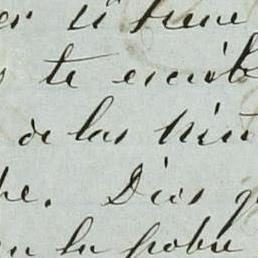 si tiene
te escrib
de las niñ
he. Dios q
en la pobre